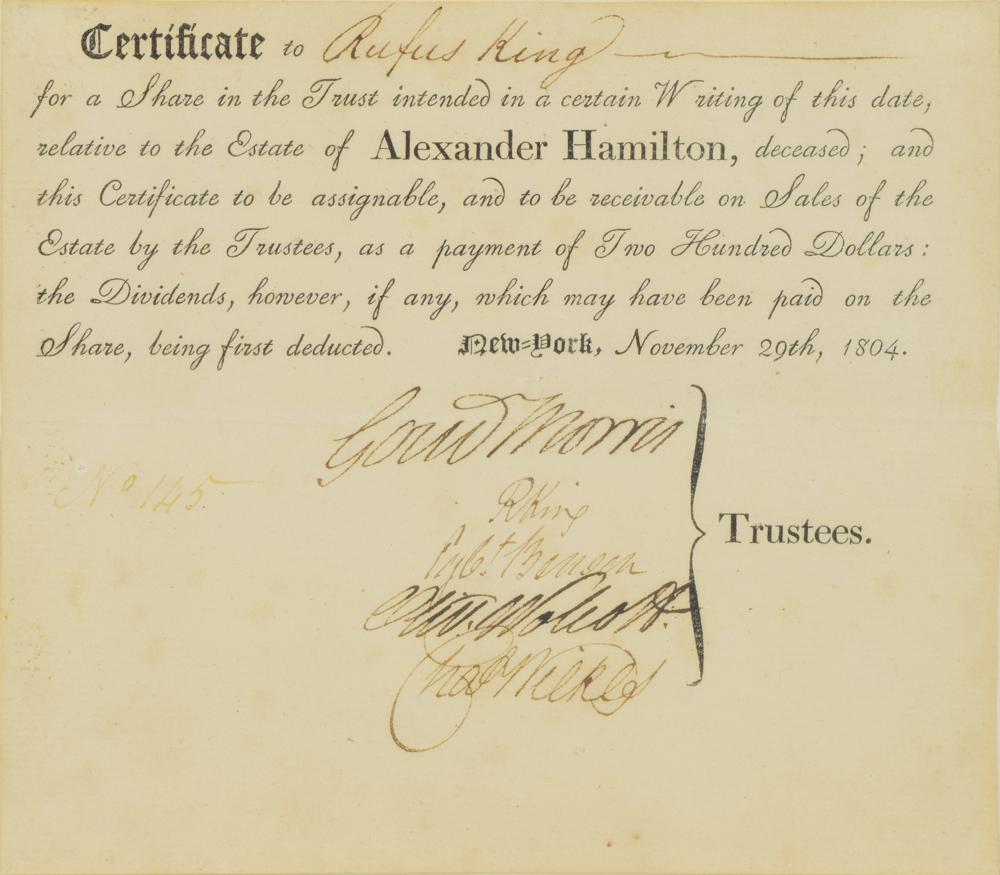 Certificate to Rufus King
for a Share in the Trust intended in a certain Writing of this date,
relative to the Estate of Alexander Hamilton, deceased; and
this Certificate to be assignable, and to be receivable on Sales of the
Estate by the Trustees, as a payment of Two Hundred Dollars:
the Dividends, however, if any, which may have been paid on the
Share, being first deducted. New-York, November 29th, 1804.
Gouv Morris
No 145
R King
Trustees.
Egbt Benson
Oliv. Wolcott.
Chas Wilkes